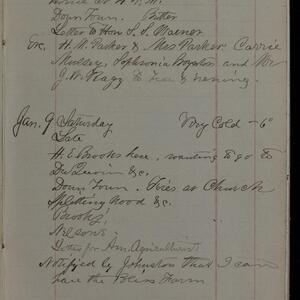 Down Town. Bitter
Letter to Hon S. S. Warner
Eve. H. M. Parker & Mrs Parker. Carrie
Mulsey, Sophronia Boynton and Mr
J. W. Flagg to Tea & evening.
Jan. 9 Saturday Very Cold - 6°
Late
H. E. Brooks here, wanting to go to
&c.
Down Town. Fires at Church
Splitting Wood & c.
Brooks'
Nelsons
Letter for Am. Agriculturist
Notified by Johnston that I can
have the Bliss Farm